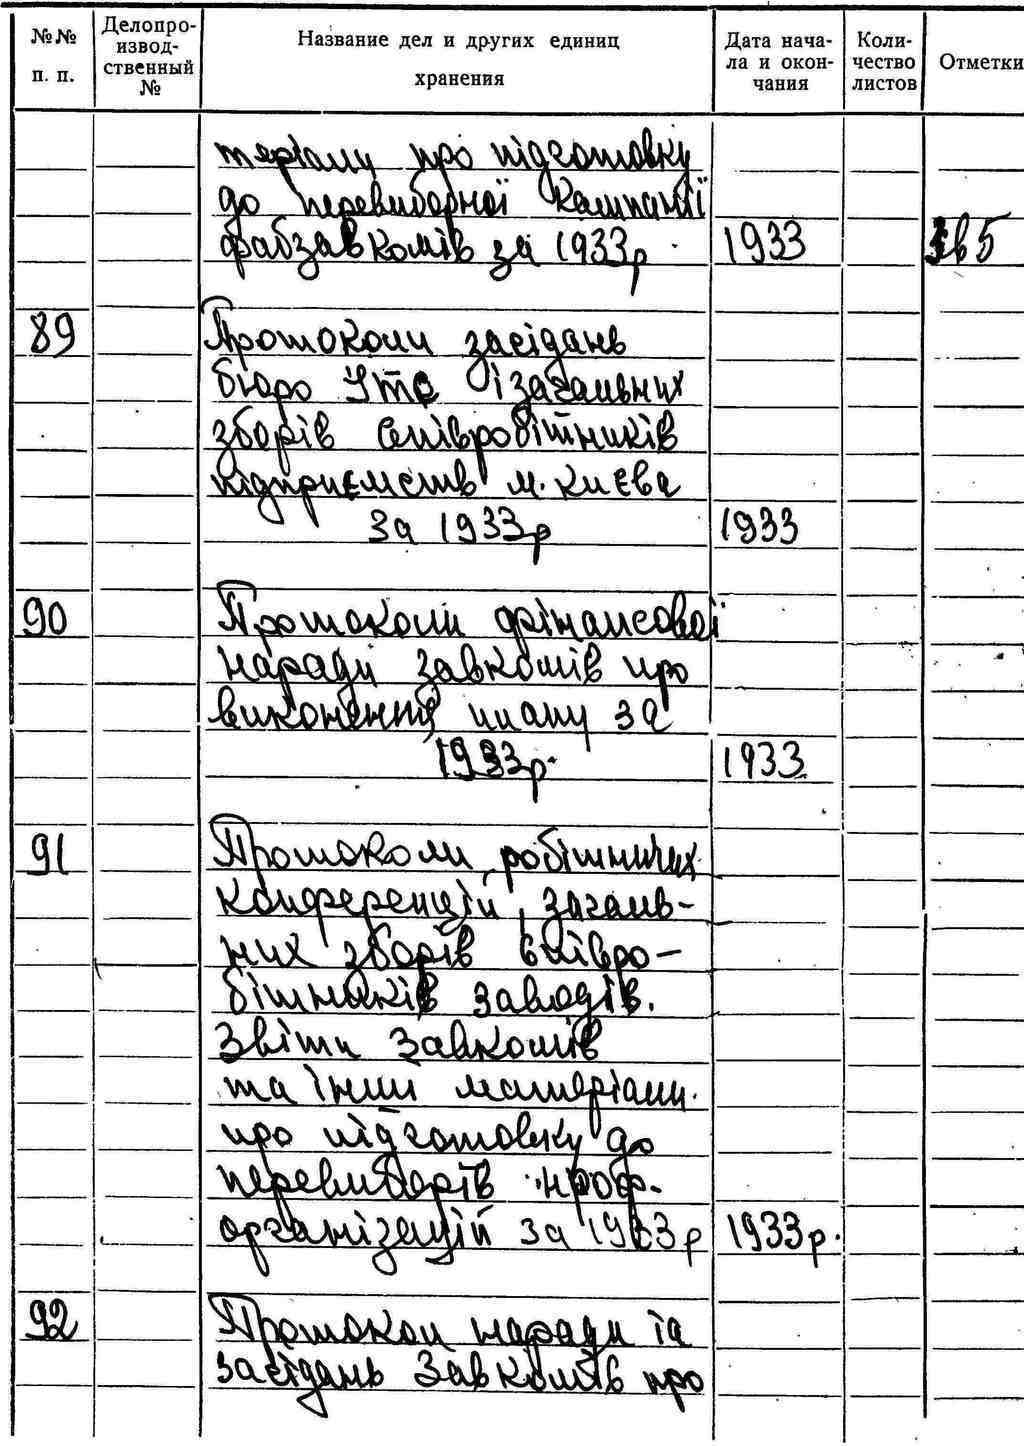 №№ п. п.
Делопро-
извод-
ственный
№
Название дел и других единиц
хранения
Дата нача-
ла и окон-
чания
Коли-
чество
листов
Отметки
теріали про підготовку
до перевиборної кампанії
фабзавкомів за 1933р. 1933
89 Протоколи засідань
бюро і загальних
зборів співробітників
підприємств м. Києва
за 1933р 1933
90 Протоколи фінансової
наради завкомів про
виконання плану за
1933р. 1933
91 Протоколи робітничих
конференцій, загаль-
них зборів співро-
бітників заводів.
Звіти завкомів
та інші матеріали
про підготовку до
перевиборів проф-
організацій за 1933р 1933р.
92 Протокол наради та
засідань Завкомів про